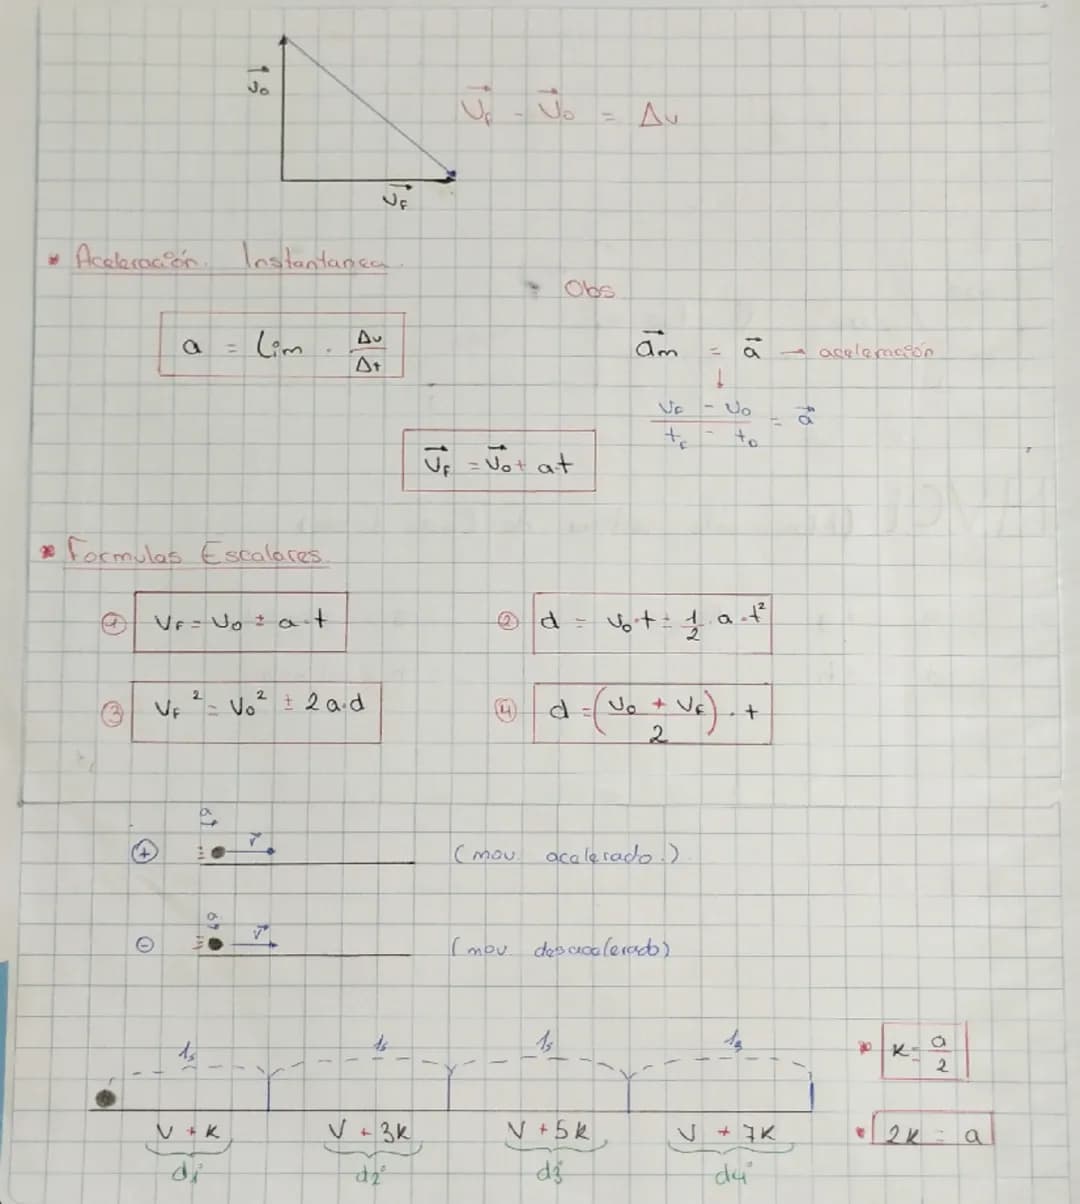 V₀
V_f - V₀ = Δv
V_f
* Aceleración Instantanea
- Obs
a = Lim . Δv/Δt
a_m = a → aceleración
↓
(V_f - V₀)/(t_f - t₀) = a
V_f = V₀ + a.t
* Formulas Escalares
① V_f = V₀ ± a.t
② d = V₀.t ± 1/2 . a.t²
③ V_f² = V₀² ± 2a.d
④ d = ((V₀ + V_f)/2) . t
a
⊕ v (mov. acelerado.)
a
⊖ v (mov. desacelerado)
1s 1s 1s 1s
* K = a/2
V + K V + 3K V + 5K V + 7K
* 2K = a
d1 d2 d3 d4